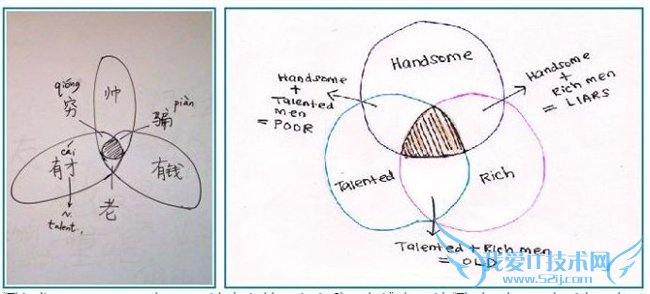 qióng
穷
帅
piàn
骗
cái
有才
有钱
n.
talent,
老
Handsome
Handsome
+
Talented
men
= POOR
Handsome
+
Rich men
= LIARS
Talented
Rich
Talented + Rich men
= OLD
我爱IT技术网
www.52ij.com